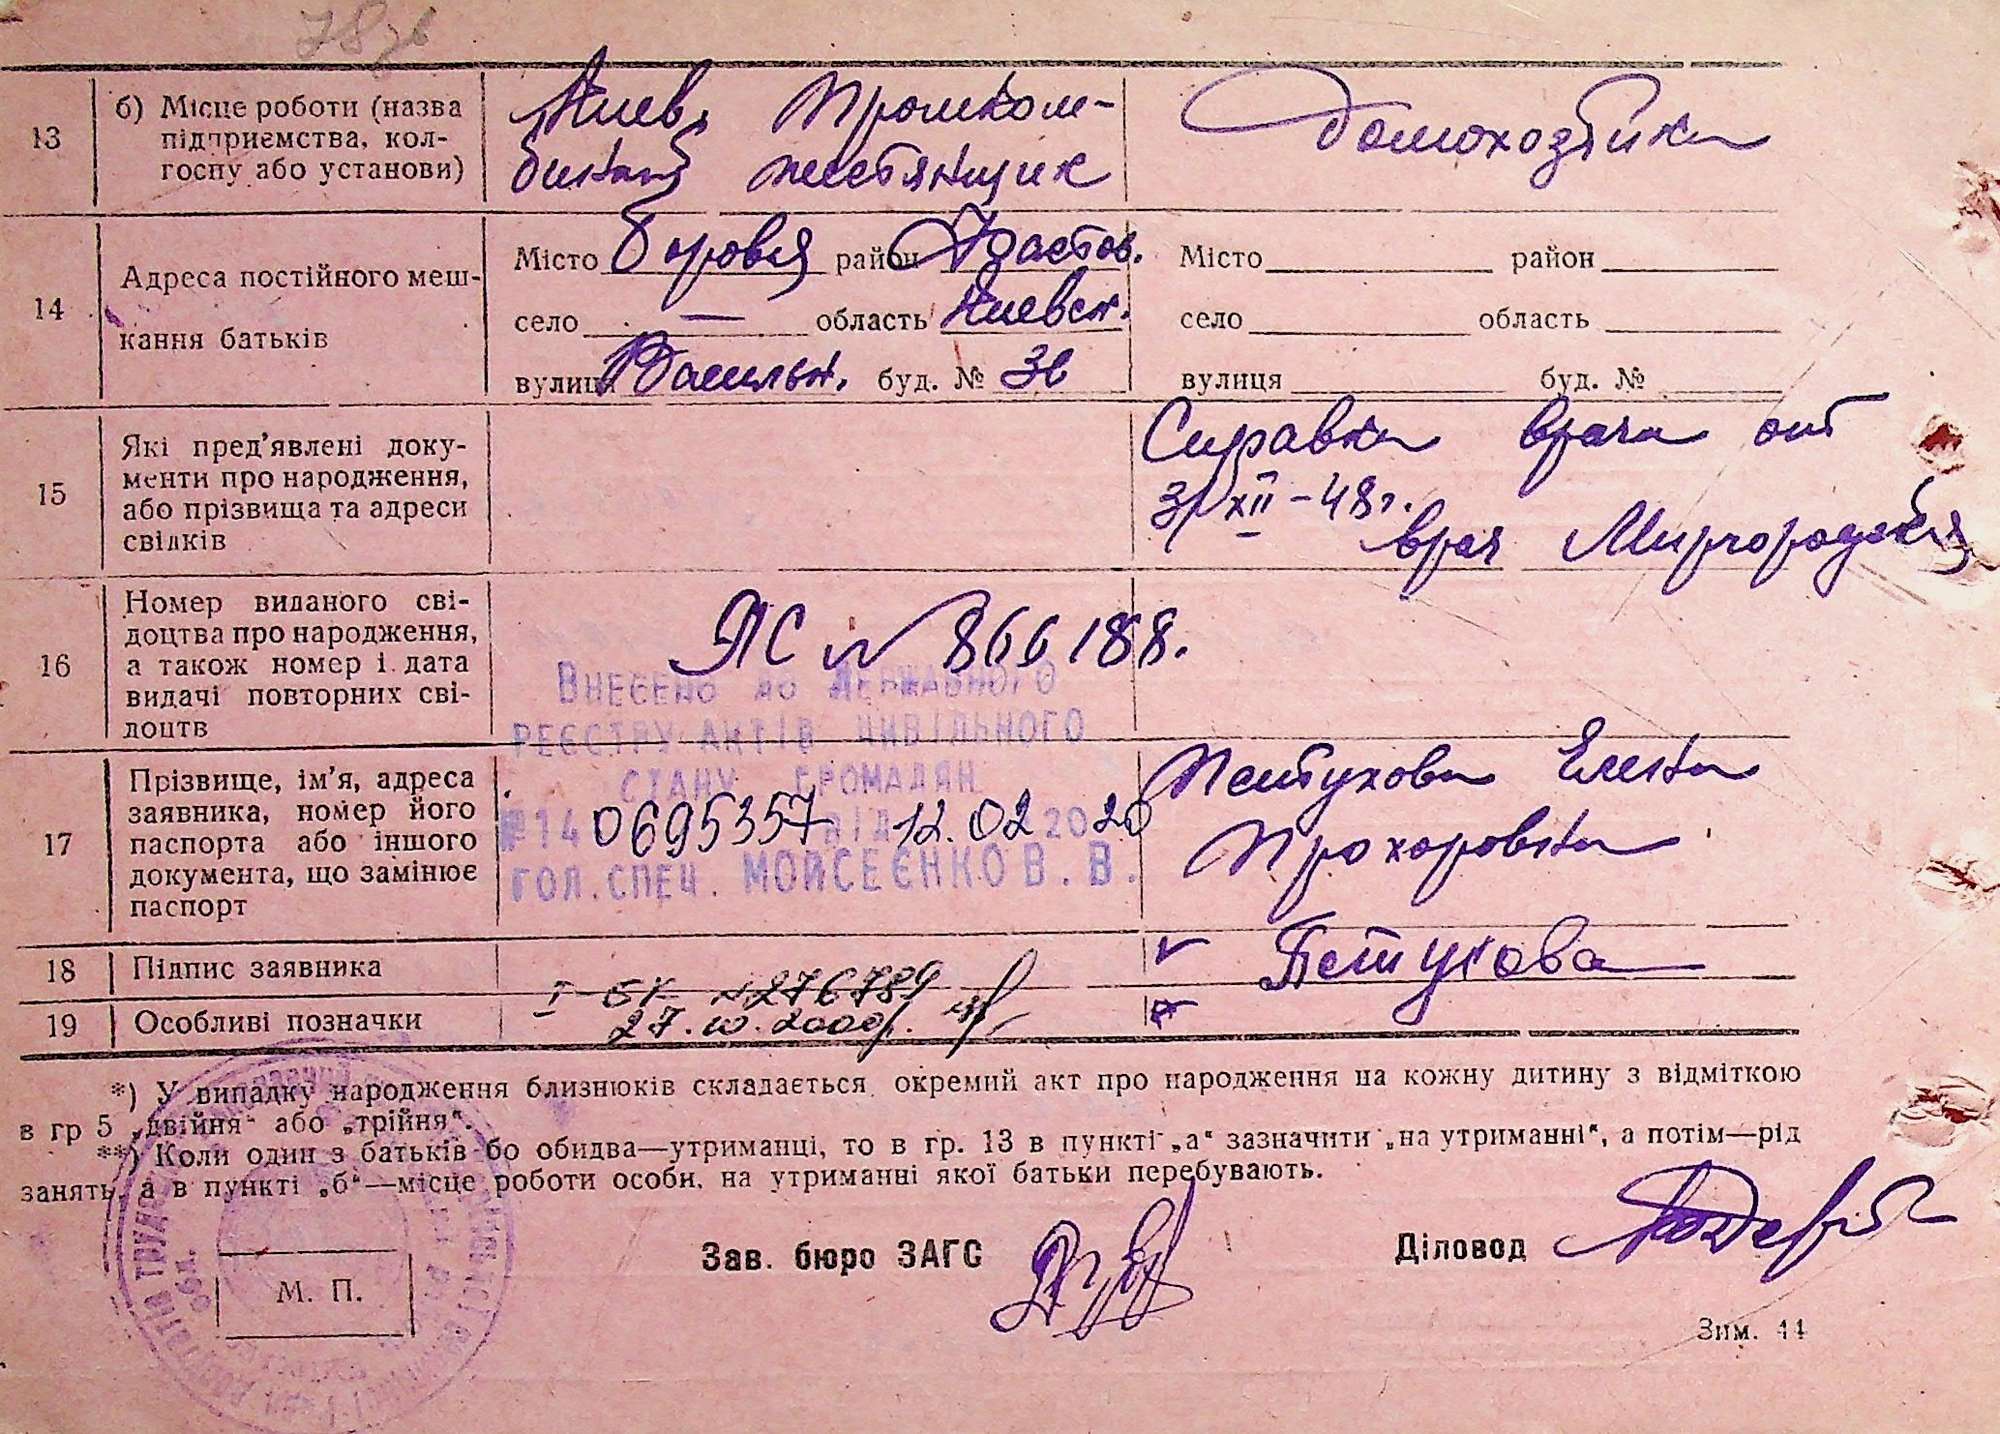 78 зв
13
б) Місце роботи (назва
підприємства, кол-
госпу або установи)
Киев, Промком-
бинат жестянщик
Домохозяйка
14
Адреса постійного меш-
кання батьків
Місто Боровая район Фастов.
село — область Киевск.
вулиця Васильк. буд. №
Місто район
село область
вулиця буд. №
15
Які пред'явлені доку-
менти про народження,
або прізвища та адреси
свідків
Справка врача от
31/XII-48г.
врач Миргородская
16
Номер виданого сві-
доцтва про народження,
а також номер і дата
видачі повторних сві-
доцтв
ЯС № 866188.
Внесено до Державного
реєстру актів цивільного
стану громадян
№ 14 0695357 від 12.02 2020
гол. спец. Мойсеєнко В. В.
17
Прізвище, ім'я, адреса
заявника, номер його
паспорта або іншого
документа, що замінює
паспорт
Петухова Елена
Прохоровна
18
Підпис заявника
Петухова
19
Особливі позначки
I-БК №276789
27.10.2000р.
*) У випадку народження близнюків складається окремий акт про народження на кожну дитину з відміткою
в гр 5 „двійня" або „трійня".
**) Коли один з батьків бо обидва—утриманці, то в гр. 13 в пункті „а" зазначити „на утриманні", а потім—рід
занять, а в пункті „б"—місце роботи особи, на утриманні якої батьки перебувають.
Зав. бюро ЗАГС
Діловод
М. П.
Зим. 44